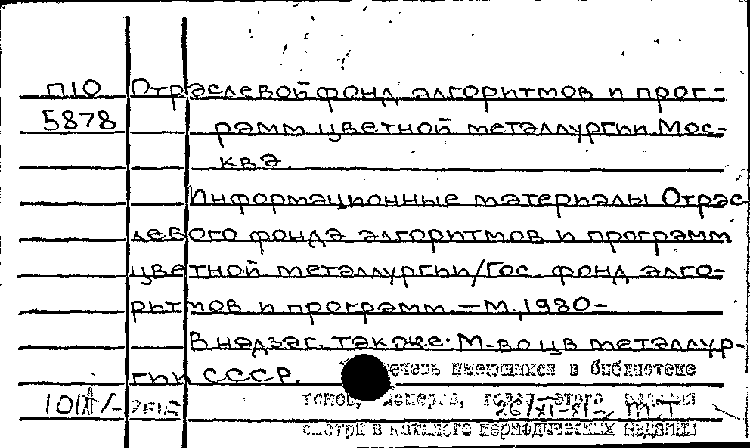 П10 Отраслевой фонд алгоритмов и прог-
5878 рамм цветной металлургии. Мос-
ква.
Информационные материалы Отрас
левого фонда алгоритмов и программ
цветной металлургии/Гос. фонд алго-
ритмов и программ. — М., 1980-
В надзаг. также: М-во цв металлур-
гии СССР.
имеющихся в библиотеке
томов, номеров,
смотри в каталоге периодических изданий